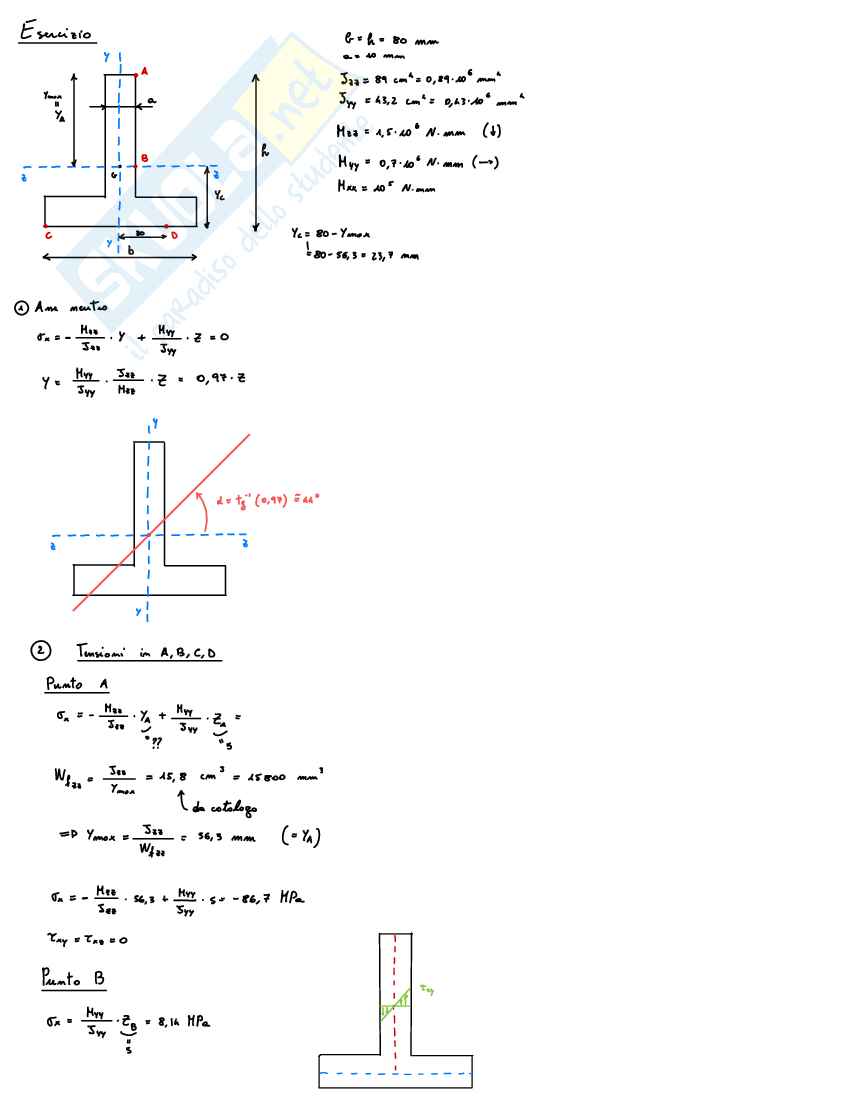 Esercizio
b = h = 80 mm
a = 10 mm
Jzz = 89 cm⁴ = 0,89·10⁶ mm⁴
Jyy = 43,2 cm⁴ = 0,43·10⁶ mm⁴
Mzz = 1,5·10⁶ N·mm (↓)
Myy = 0,7·10⁶ N·mm (→)
Mxx = 10⁵ N·mm
Yc = 80 - Ymax
= 80 - 56,3 = 23,7 mm
y
A
Ymax = YA
a
h
B
z
G
z
Yc
C
30
D
y
b
SKUOLA.net
il paradiso dello studente
1 Asse neutro
σx = - Mzz/Jzz · Y + Myy/Jyy · Z = 0
Y = Myy/Jyy · Jzz/Mzz · Z = 0,97 · Z
y
α = tg⁻¹ (0,97) ≅ 44°
z
z
y
2 Tensioni in A, B, C, D
Punto A
σx = - Mzz/Jzz · YA + Myy/Jyy · ZA =
= ??
= 5
Wfzz = Jzz/Ymax = 15,8 cm³ = 15800 mm³
da catalogo
=> Ymax = Jzz/Wfzz = 56,3 mm (= YA)
σx = - Mzz/Jzz · 56,3 + Myy/Jyy · 5 = -86,7 MPa
τxy = τxz = 0
Punto B
τxy
σx = Myy/Jyy · ZB = 8,14 MPa
= 5